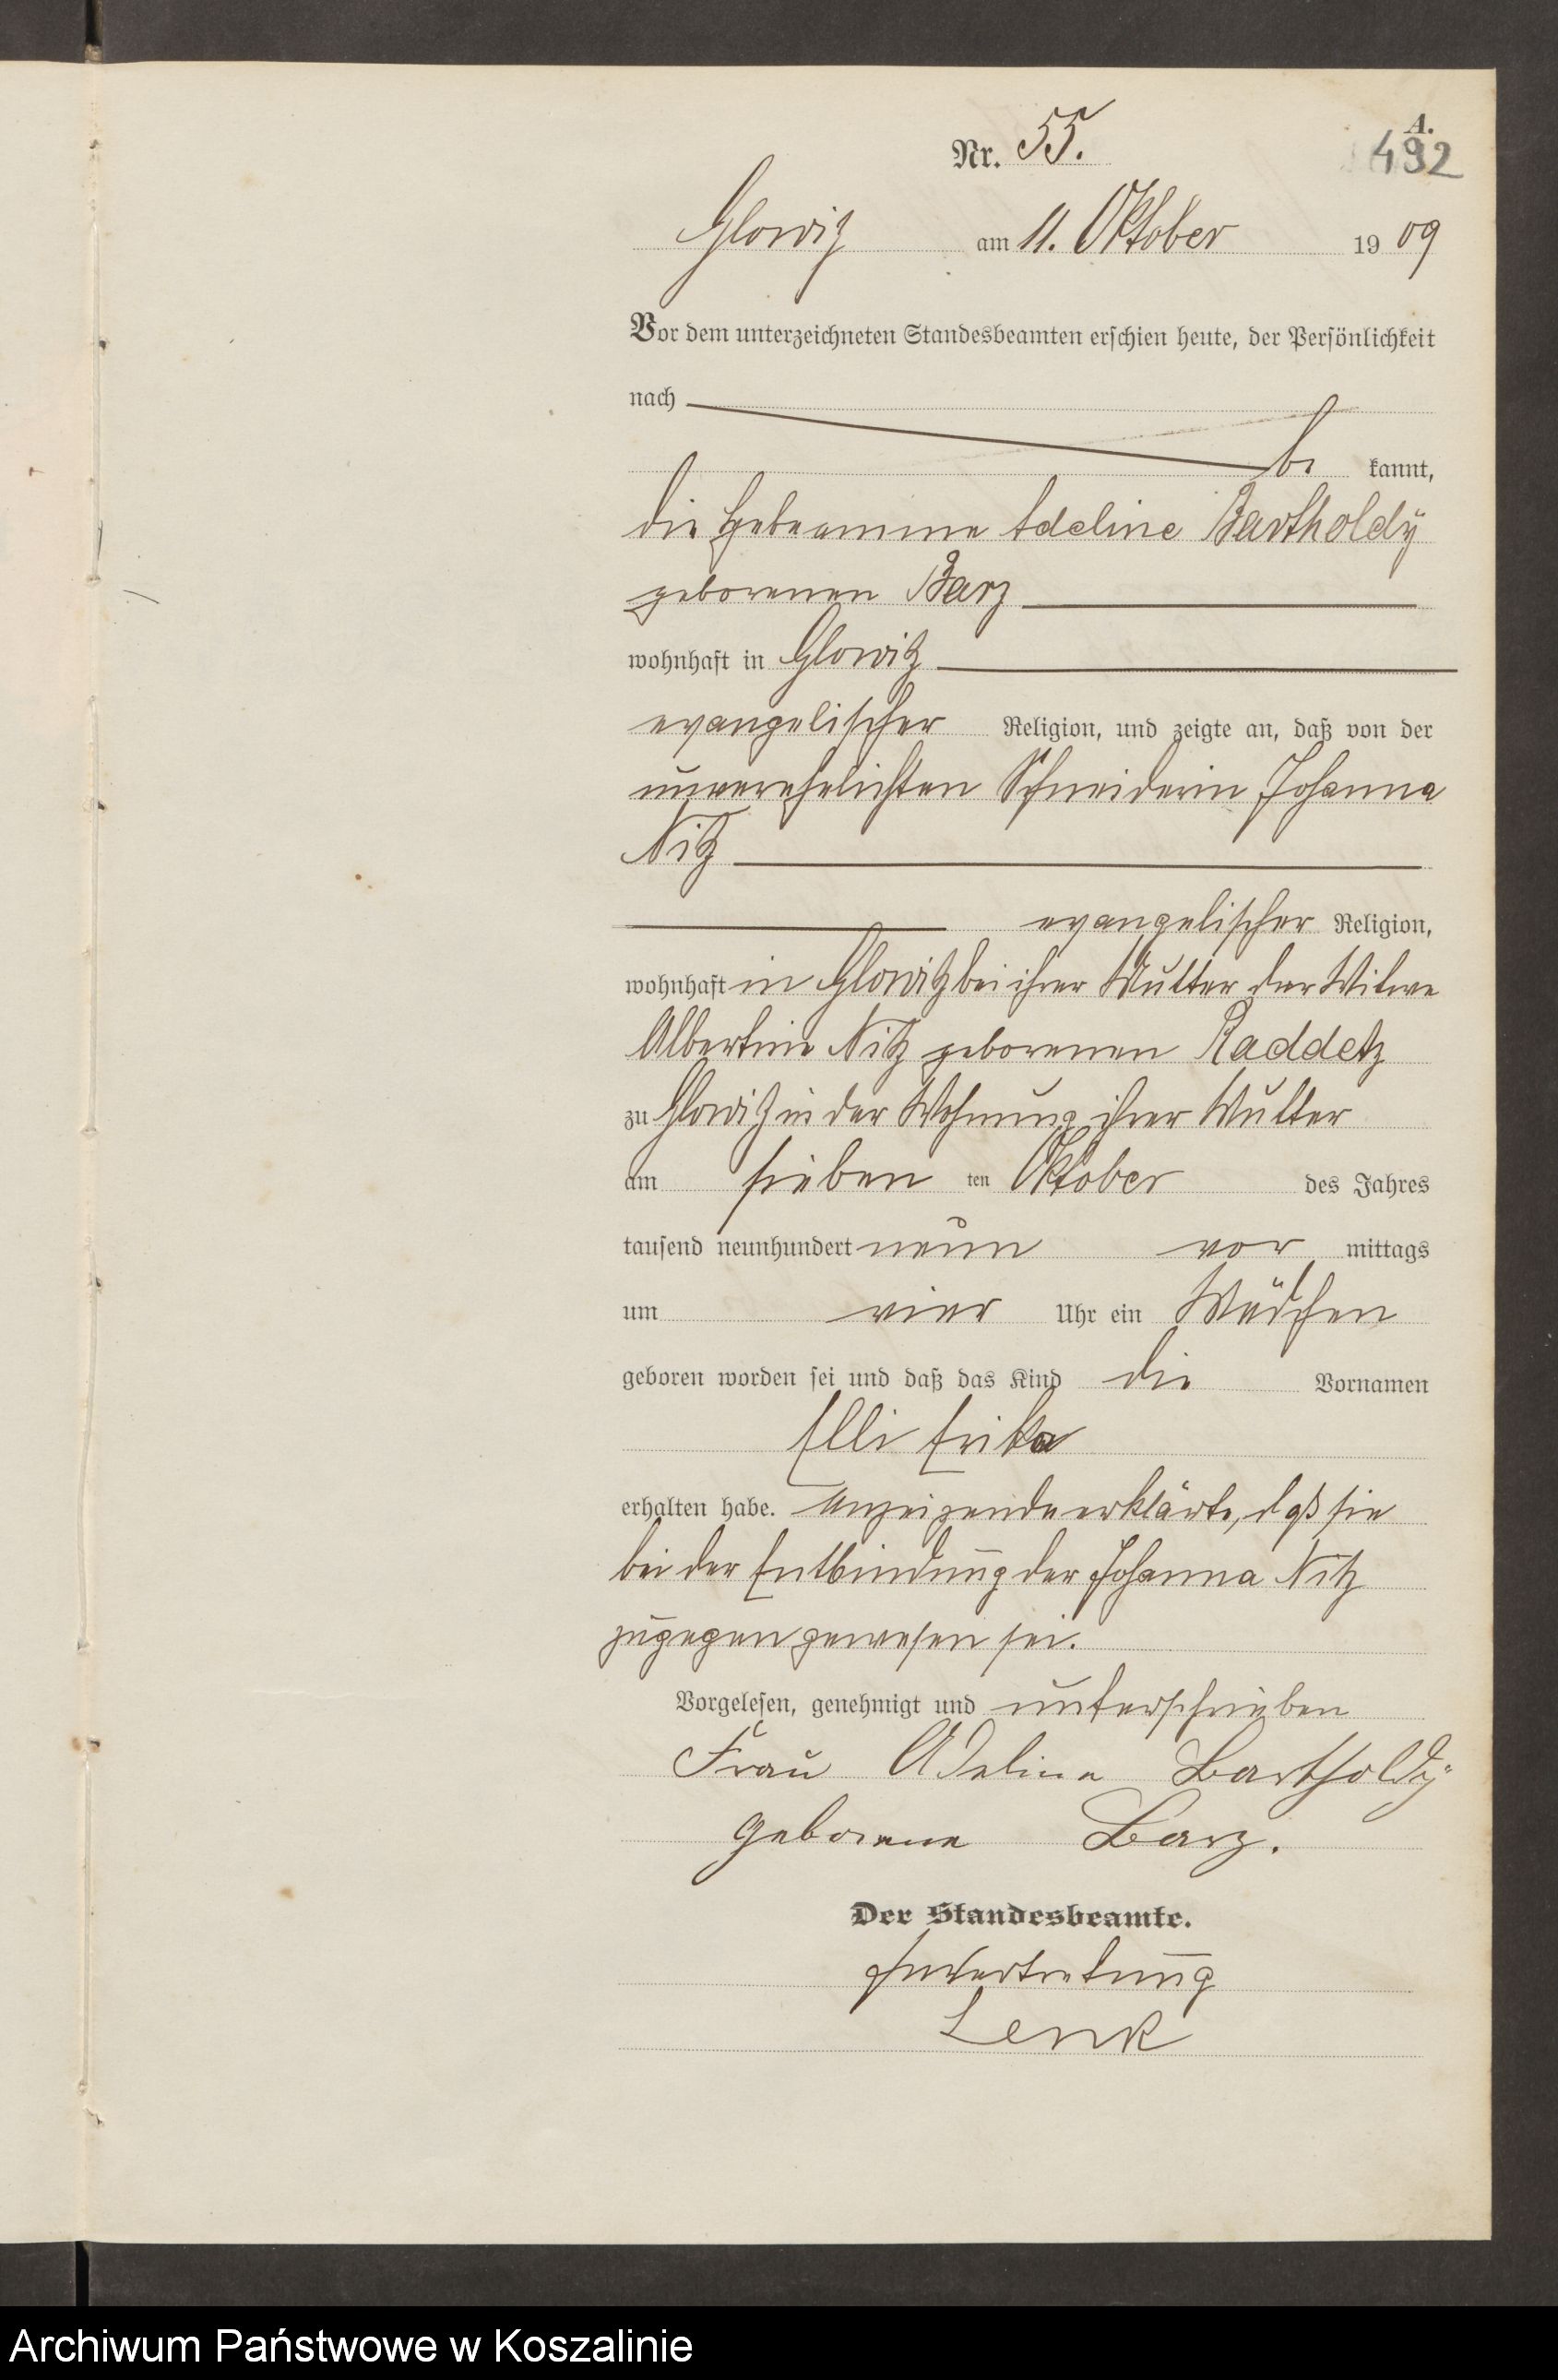 Nr. 55.
A.
492
Glowitz am 11. Oktober 1909
Vor dem unterzeichneten Standesbeamten erschien heute, der Persönlichkeit
nach
be kannt,
die Hebeamme Adeline Bartholdÿ
geborenen Barz
wohnhaft in Glowitz
evangelischer Religion, und zeigte an, daß von der
unverehelichten Schneiderin Johanna
Nitz
evangelischer Religion,
wohnhaft in Glowitz bei ihrer Mutter der Witwe
Albertine Nitz geborenen Raddetz
zu Glowitz in der Wohnung ihrer Mutter
am sieben ten Oktober des Jahres
tausend neunhundert neun vor mittags
um vier Uhr ein Mädchen
geboren worden sei und daß das Kind die Vornamen
Elli Erika
erhalten habe. Anzeigende erklärte, daß sie
bei der Entbindung der Johanna Nitz
zugegen gewesen sei.
Vorgelesen, genehmigt und unterschrieben
Frau Adeline Bartholdÿ
geborene Barz.
Der Standesbeamte.
In Vertretung
Lenk
Archiwum Państwowe w Koszalinie